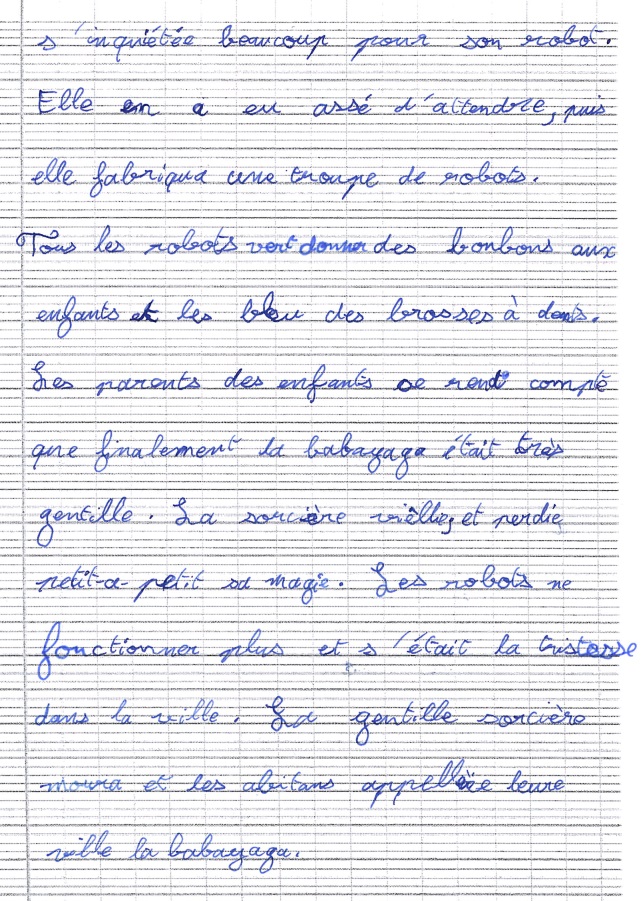 s'inquiétée beaucoup pour son robot.
Elle en a eu assé d'attendre, puis
elle fabriqua une troupe de robots.
Tous les robots vert donna des bonbons aux
enfants et les bleu des brosses à dents.
Les parents des enfants se rendt compte
que finalement la babayaga était très
gentille. La sorcière vièllie, et perdie
petit-a-petit sa magie. Les robots ne
fonctionner plus et s'était la tristesse
dans la ville. La gentille sorcière
moura et les abitans appellée leure
ville la babayaga.